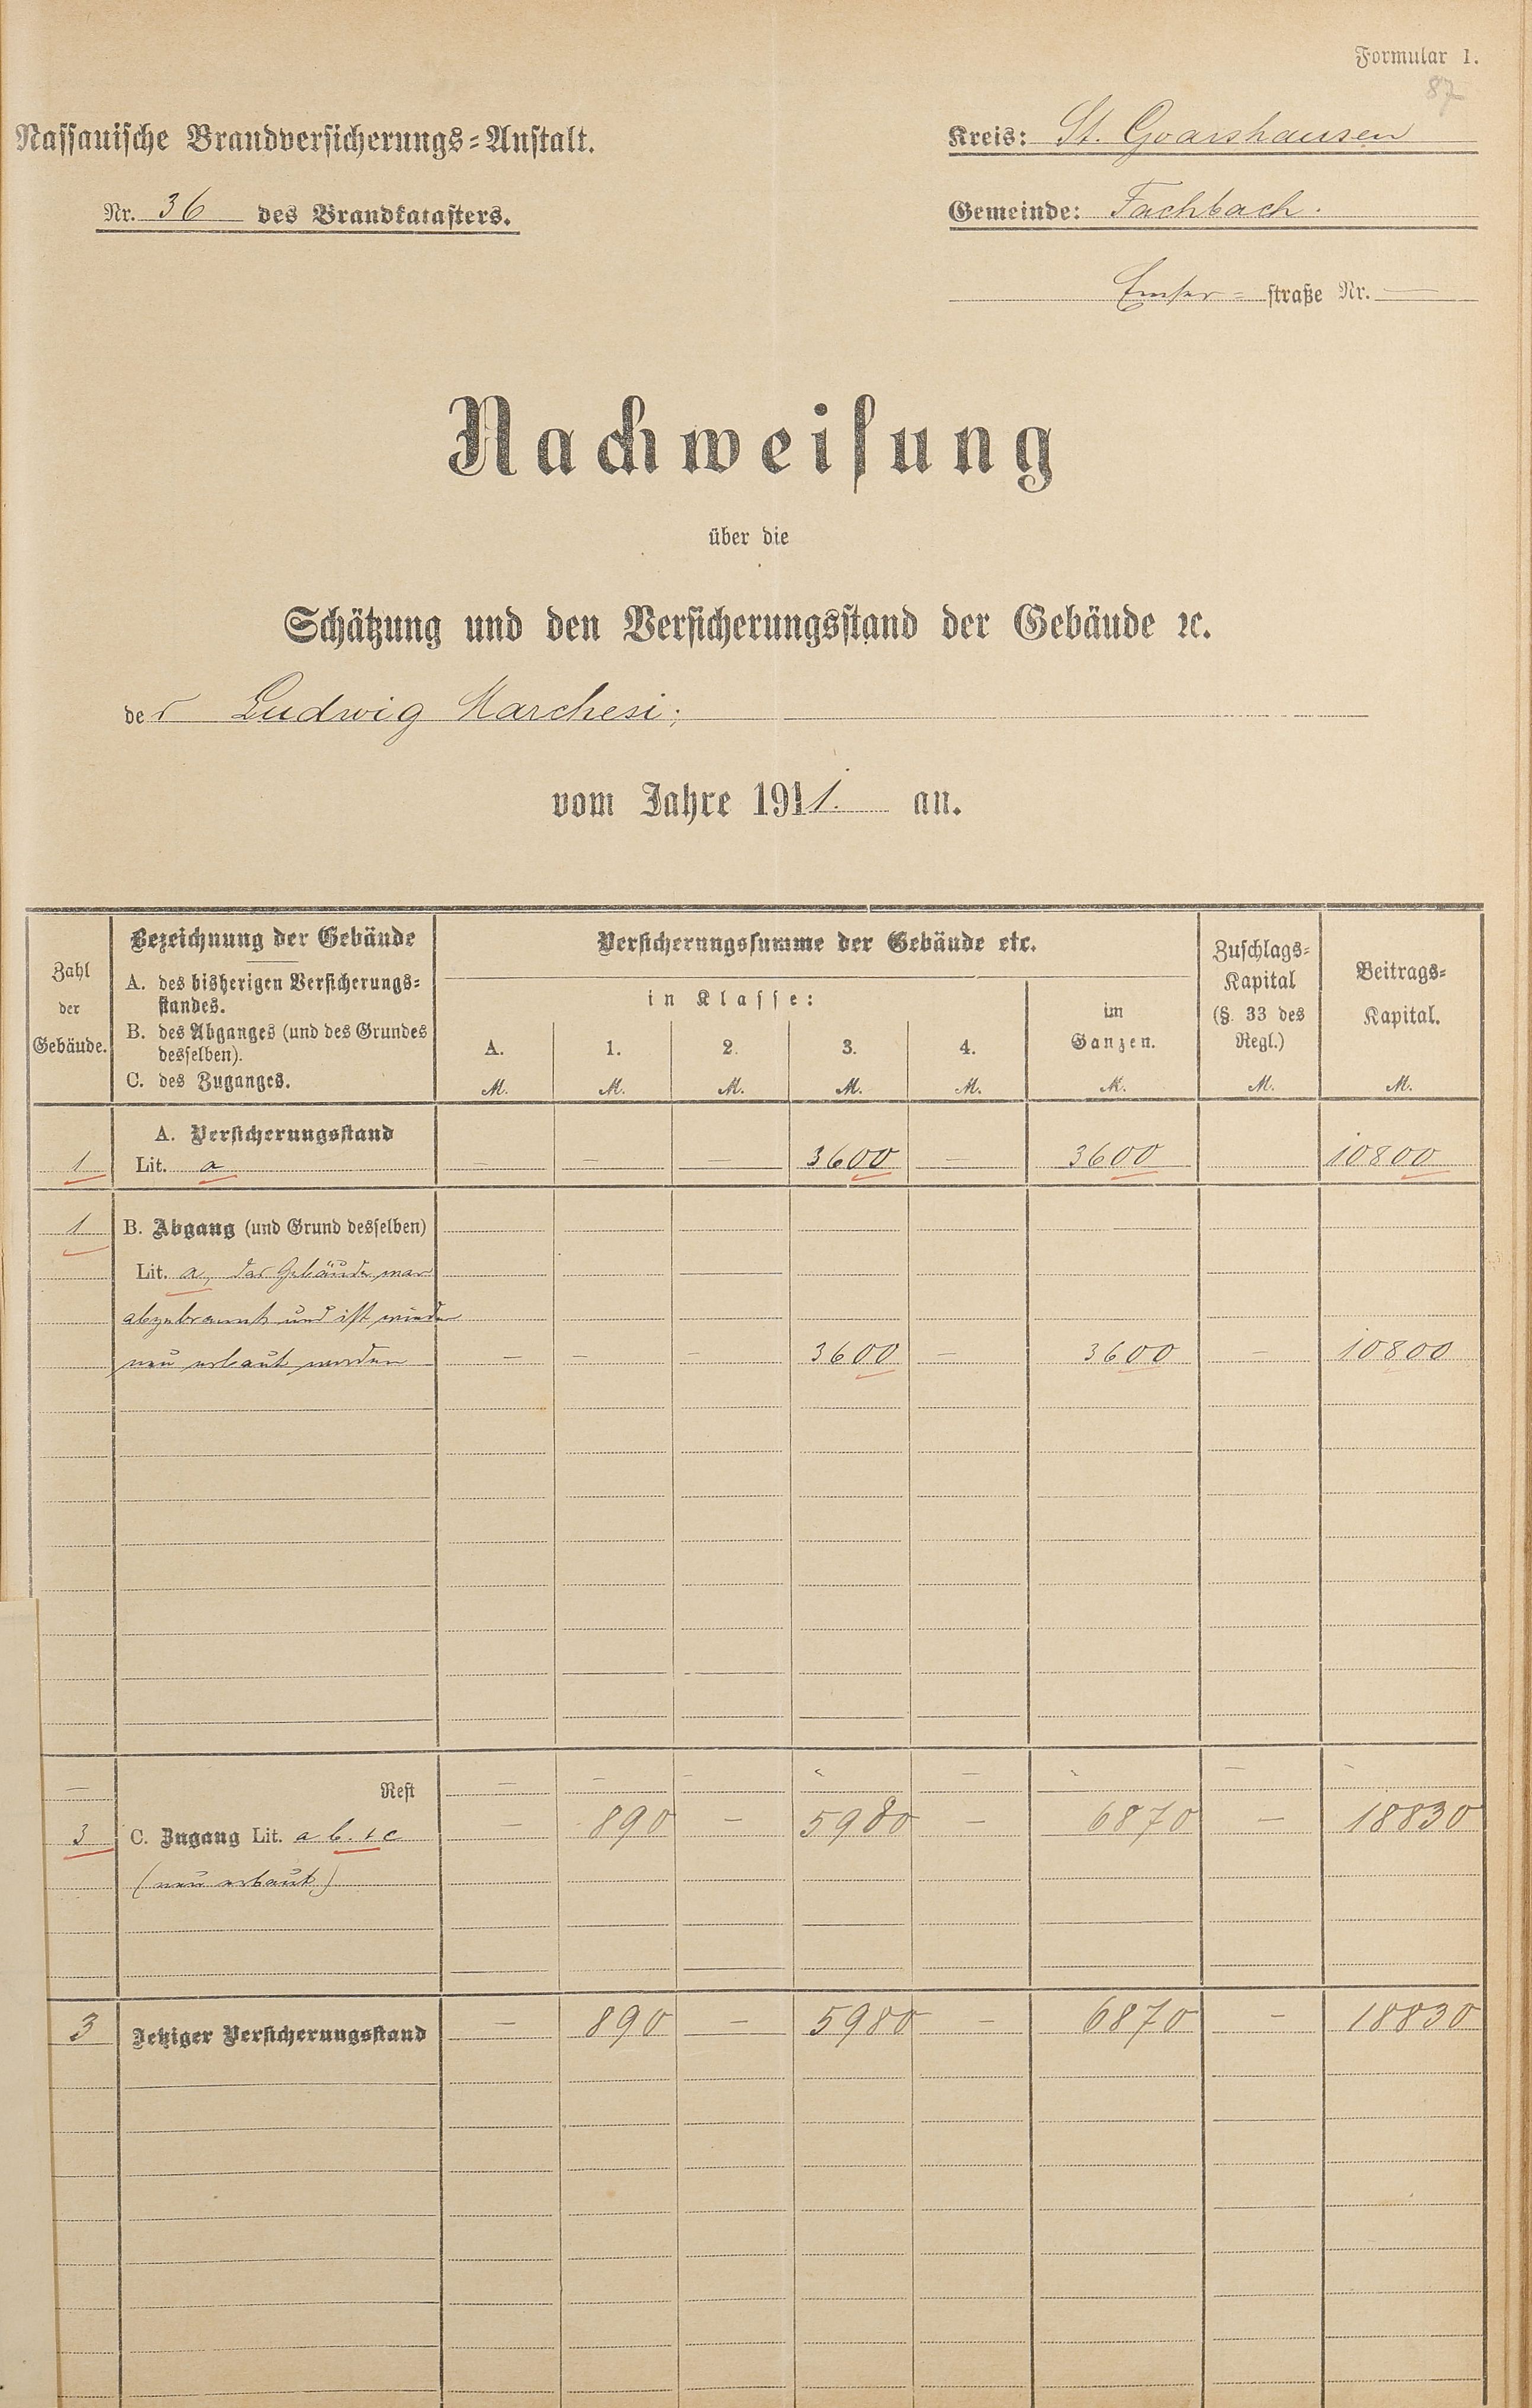 Formular 1.
87
Nassauische Brandversicherungs-Anstalt.
Kreis: St. Goarshausen
Nr. 36 des Brandkatasters.
Gemeinde: Fachbach.
Emser- straße Nr. —
Nachweisung
über die
Schätzung und den Versicherungsstand der Gebäude ꝛc.
der Ludwig Marchesi;
vom Jahre 1911. an.
Zahl der Gebäude.
Bezeichnung der Gebäude
A. des bisherigen Versicherungs-
standes.
B. des Abganges (und des Grundes
desselben).
C. des Zuganges.
Versicherungssumme der Gebäude etc.
in Klasse:
A. 1. 2. 3. 4.
M. M. M. M. M.
im
Ganzen.
M.
Zuschlags-
Kapital
(§. 33 des
Regl.)
M.
Beitrags-
Kapital.
M.
A. Versicherungsstand
1 Lit. a — — — 3600 — 3600 10800
1 B. Abgang (und Grund desselben)
Lit. a, das Gebäude war
abgebrannt und ist wieder
neu erbaut worden — — — 3600 — 3600 — 10800
— Rest — — — — — — — —
3 C. Zugang Lit. a b. & c — 890 — 5980 — 6870 — 18830
(neu erbaut)
3 Jetziger Versicherungsstand — 890 — 5980 — 6870 — 18830